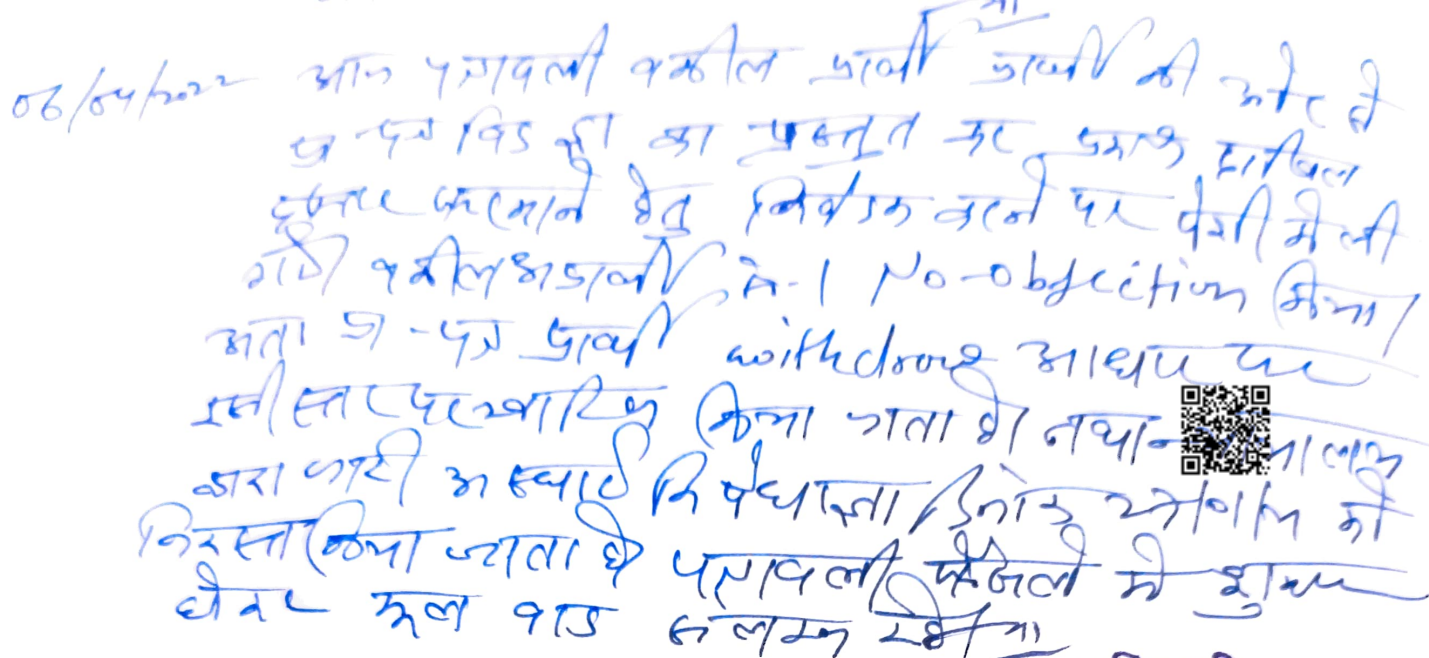 06/04/2022 आज पत्रावली वकील प्रार्थी प्रार्थी की ओर से
प्रा-पत्र विड ड्रा का प्रस्तुत कर दाखिल
दफ्तर फरमाने हेतु निवेदन करने पर पेशी में ली
गयी वकील अप्रार्थी नं-1 No-objection किया।
अतः प्रा-पत्र प्रार्थी withdraw आधार पर
इसी स्तर पर खारिज किया जाता है। न्यायालय
द्वारा जारी अस्थाई निषेधाज्ञा दिनांक को
निरस्त किया जाता है पत्रावली फैसले में शुमार
होकर मूल वाद संलग्न रहे।